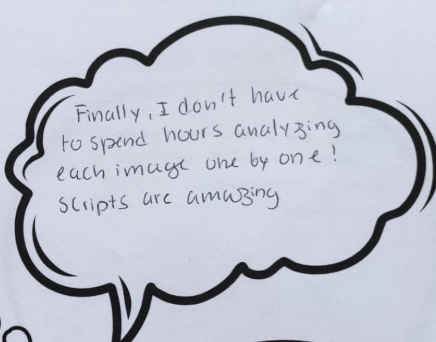 Finally, I don't have
to spend hours analyzing
each image one by one!
scripts are amazing